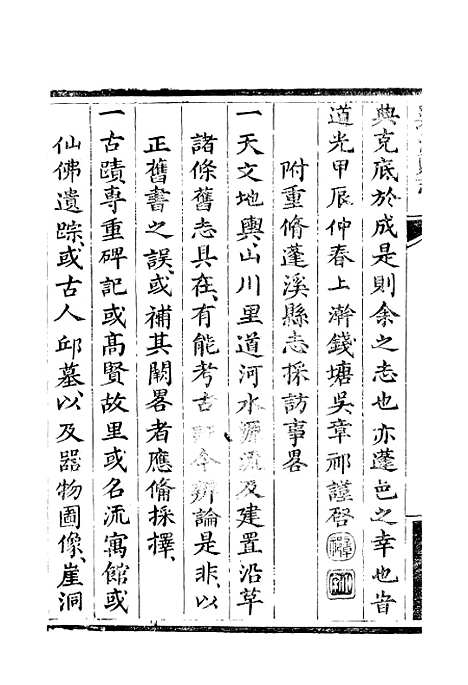 典克底於成是則余之志也亦蓬邑之幸也旹
道光甲辰仲春上澣錢塘吳章祁謹啓
附重脩蓬溪縣志採訪事畧
一天文地輿、山川里道河水源流及建置沿革
諸條舊志具在、有能考古証今辨論是非、以
正舊書之誤、或補其闕畧者應備採擇、
一古蹟專重碑記或高賢故里或名流寓館或
仙佛遺踪、或古人邱墓以及器物圖像、崖洞